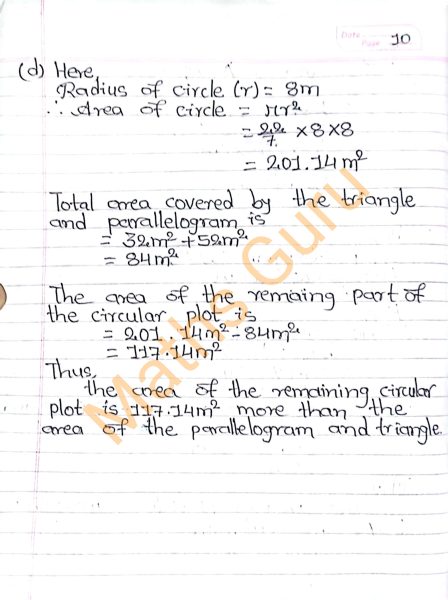 Date
Page 10
(d) Here,
Radius of circle (r) = 8m
∴ Area of circle = πr²
= 22/7 × 8 × 8
= 201.14m²
Total area covered by the triangle
and parrallelogram is
= 32m² + 52m²
= 84m²
The area of the remaing part of
the circular plot is
= 201.14m² - 84m²
= 117.14m²
Thus,
the area of the remaining circular
plot is 117.14m² more than the
area of the parallelogram and triangle.
Maths Guru